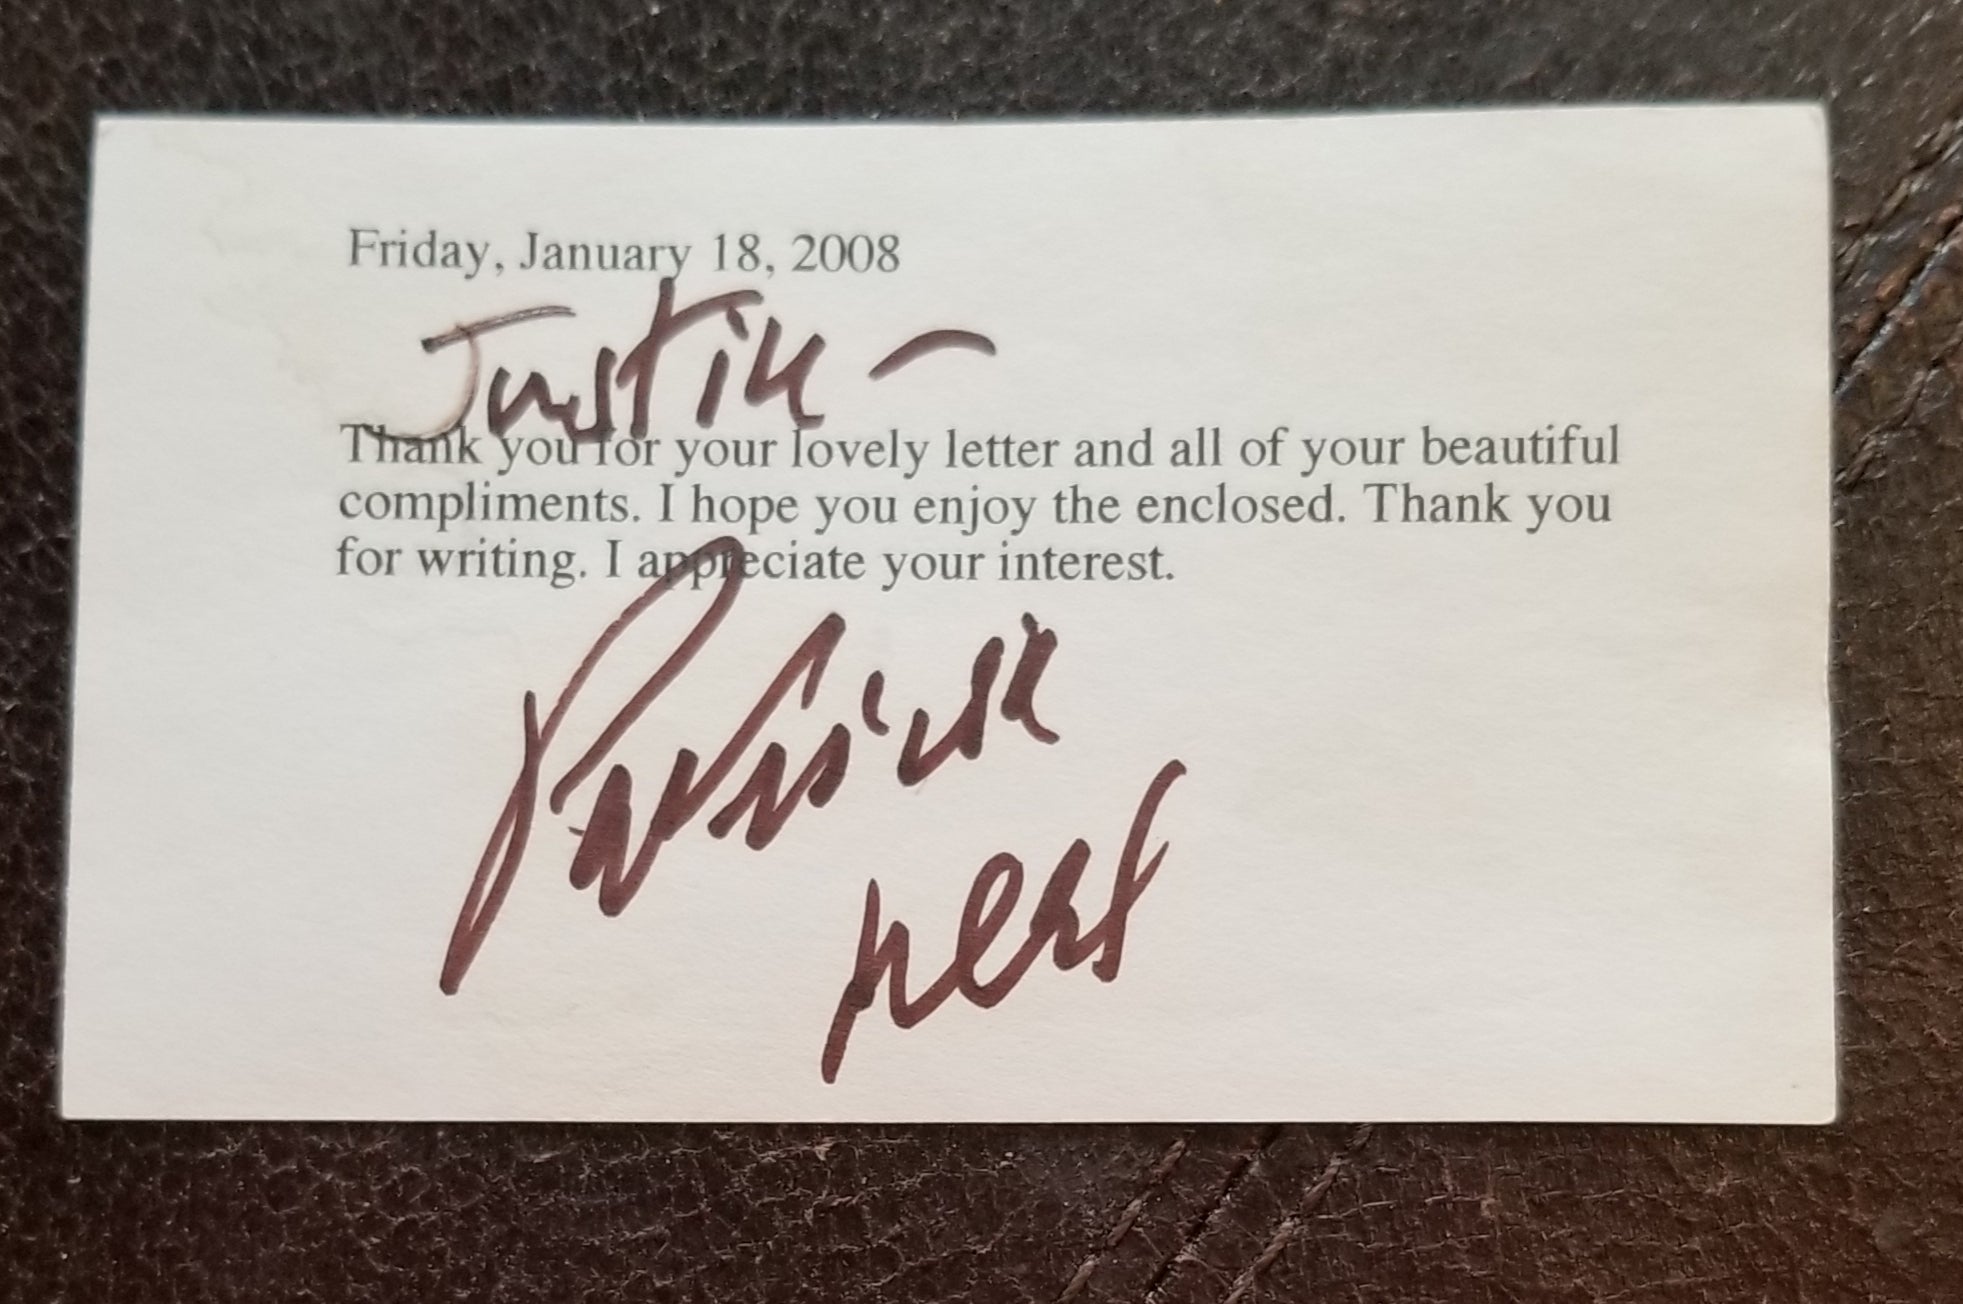 Friday, January 18, 2008
Justin –
Thank you for your lovely letter and all of your beautiful
compliments. I hope you enjoy the enclosed. Thank you
for writing. I appreciate your interest.
Patricia
Neal